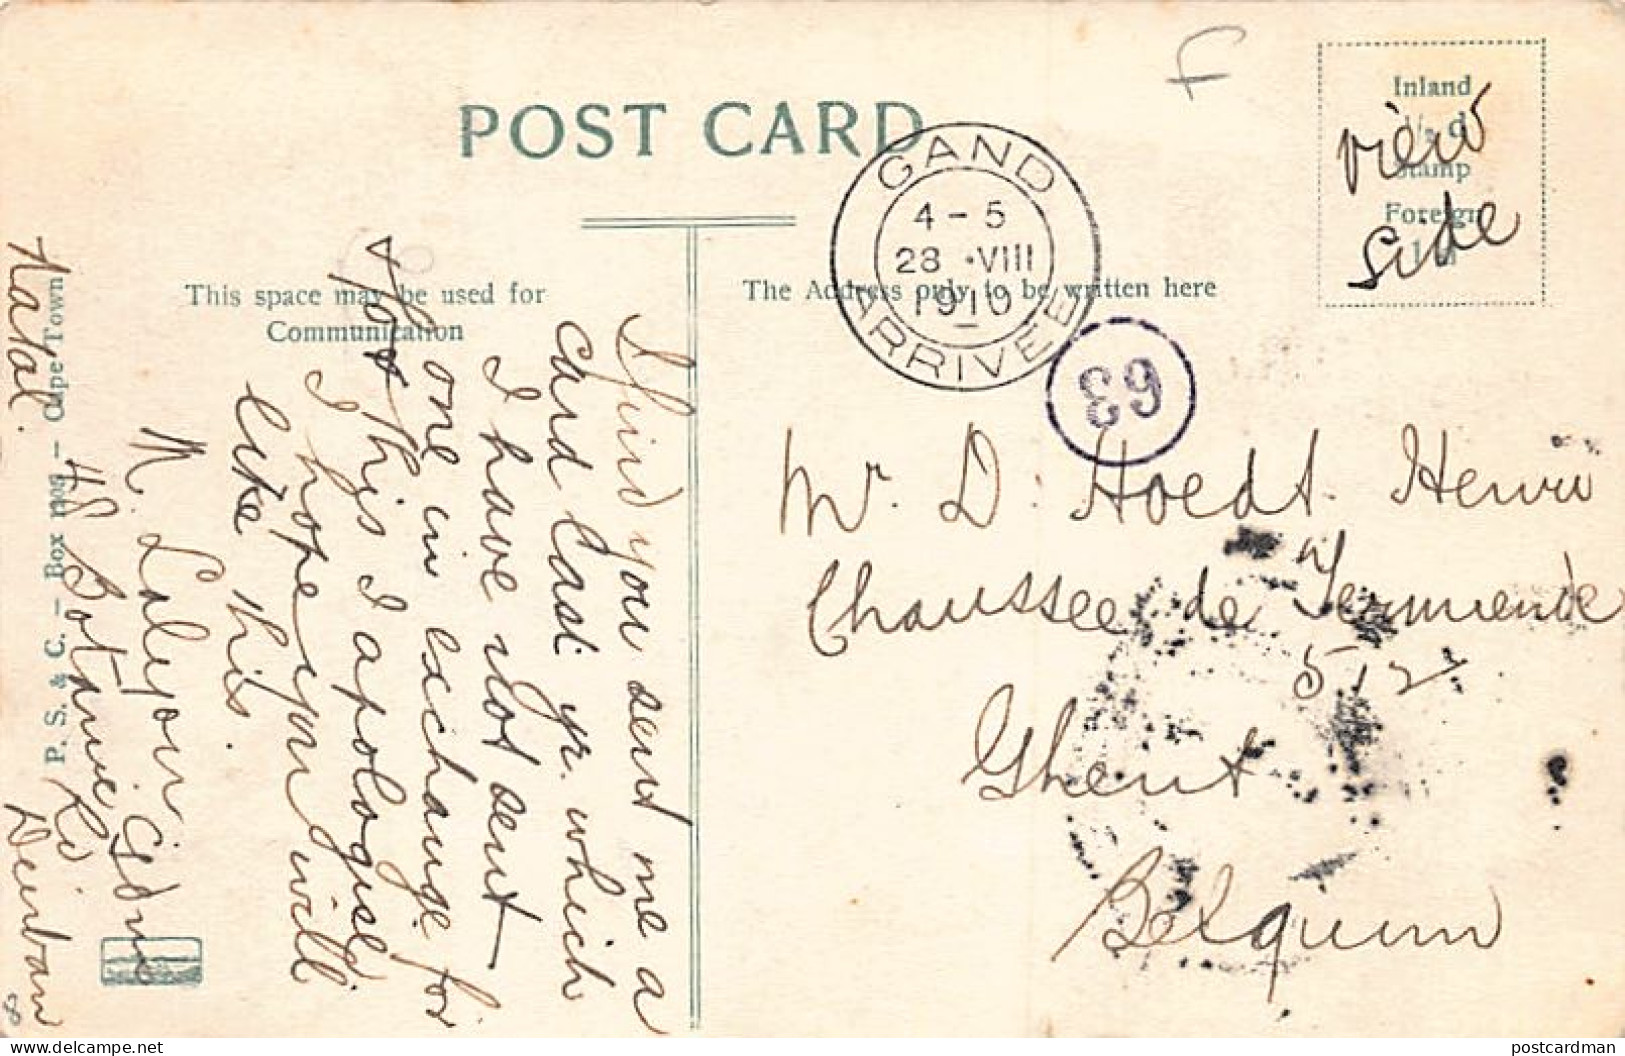 POST CARD
Inland
½ d
Stamp
Foreign
view
side
F
GAND
4 - 5
28 VIII
1910
ARRIVEE
69
This space may be used for
Communication
The Address only to be written here
Mr. D. Hoedt Henri
Chaussee de Termonde
512
Ghent
Belguim
I find you sent me a
card last yr. which
I have not sent
one in exchange for
this I apologise
I hope you will
like this.
48 Botanic Rd
Durban
Natal.
P. S. & C. – Box – Cape Town
8
delcampe.net
postcardman